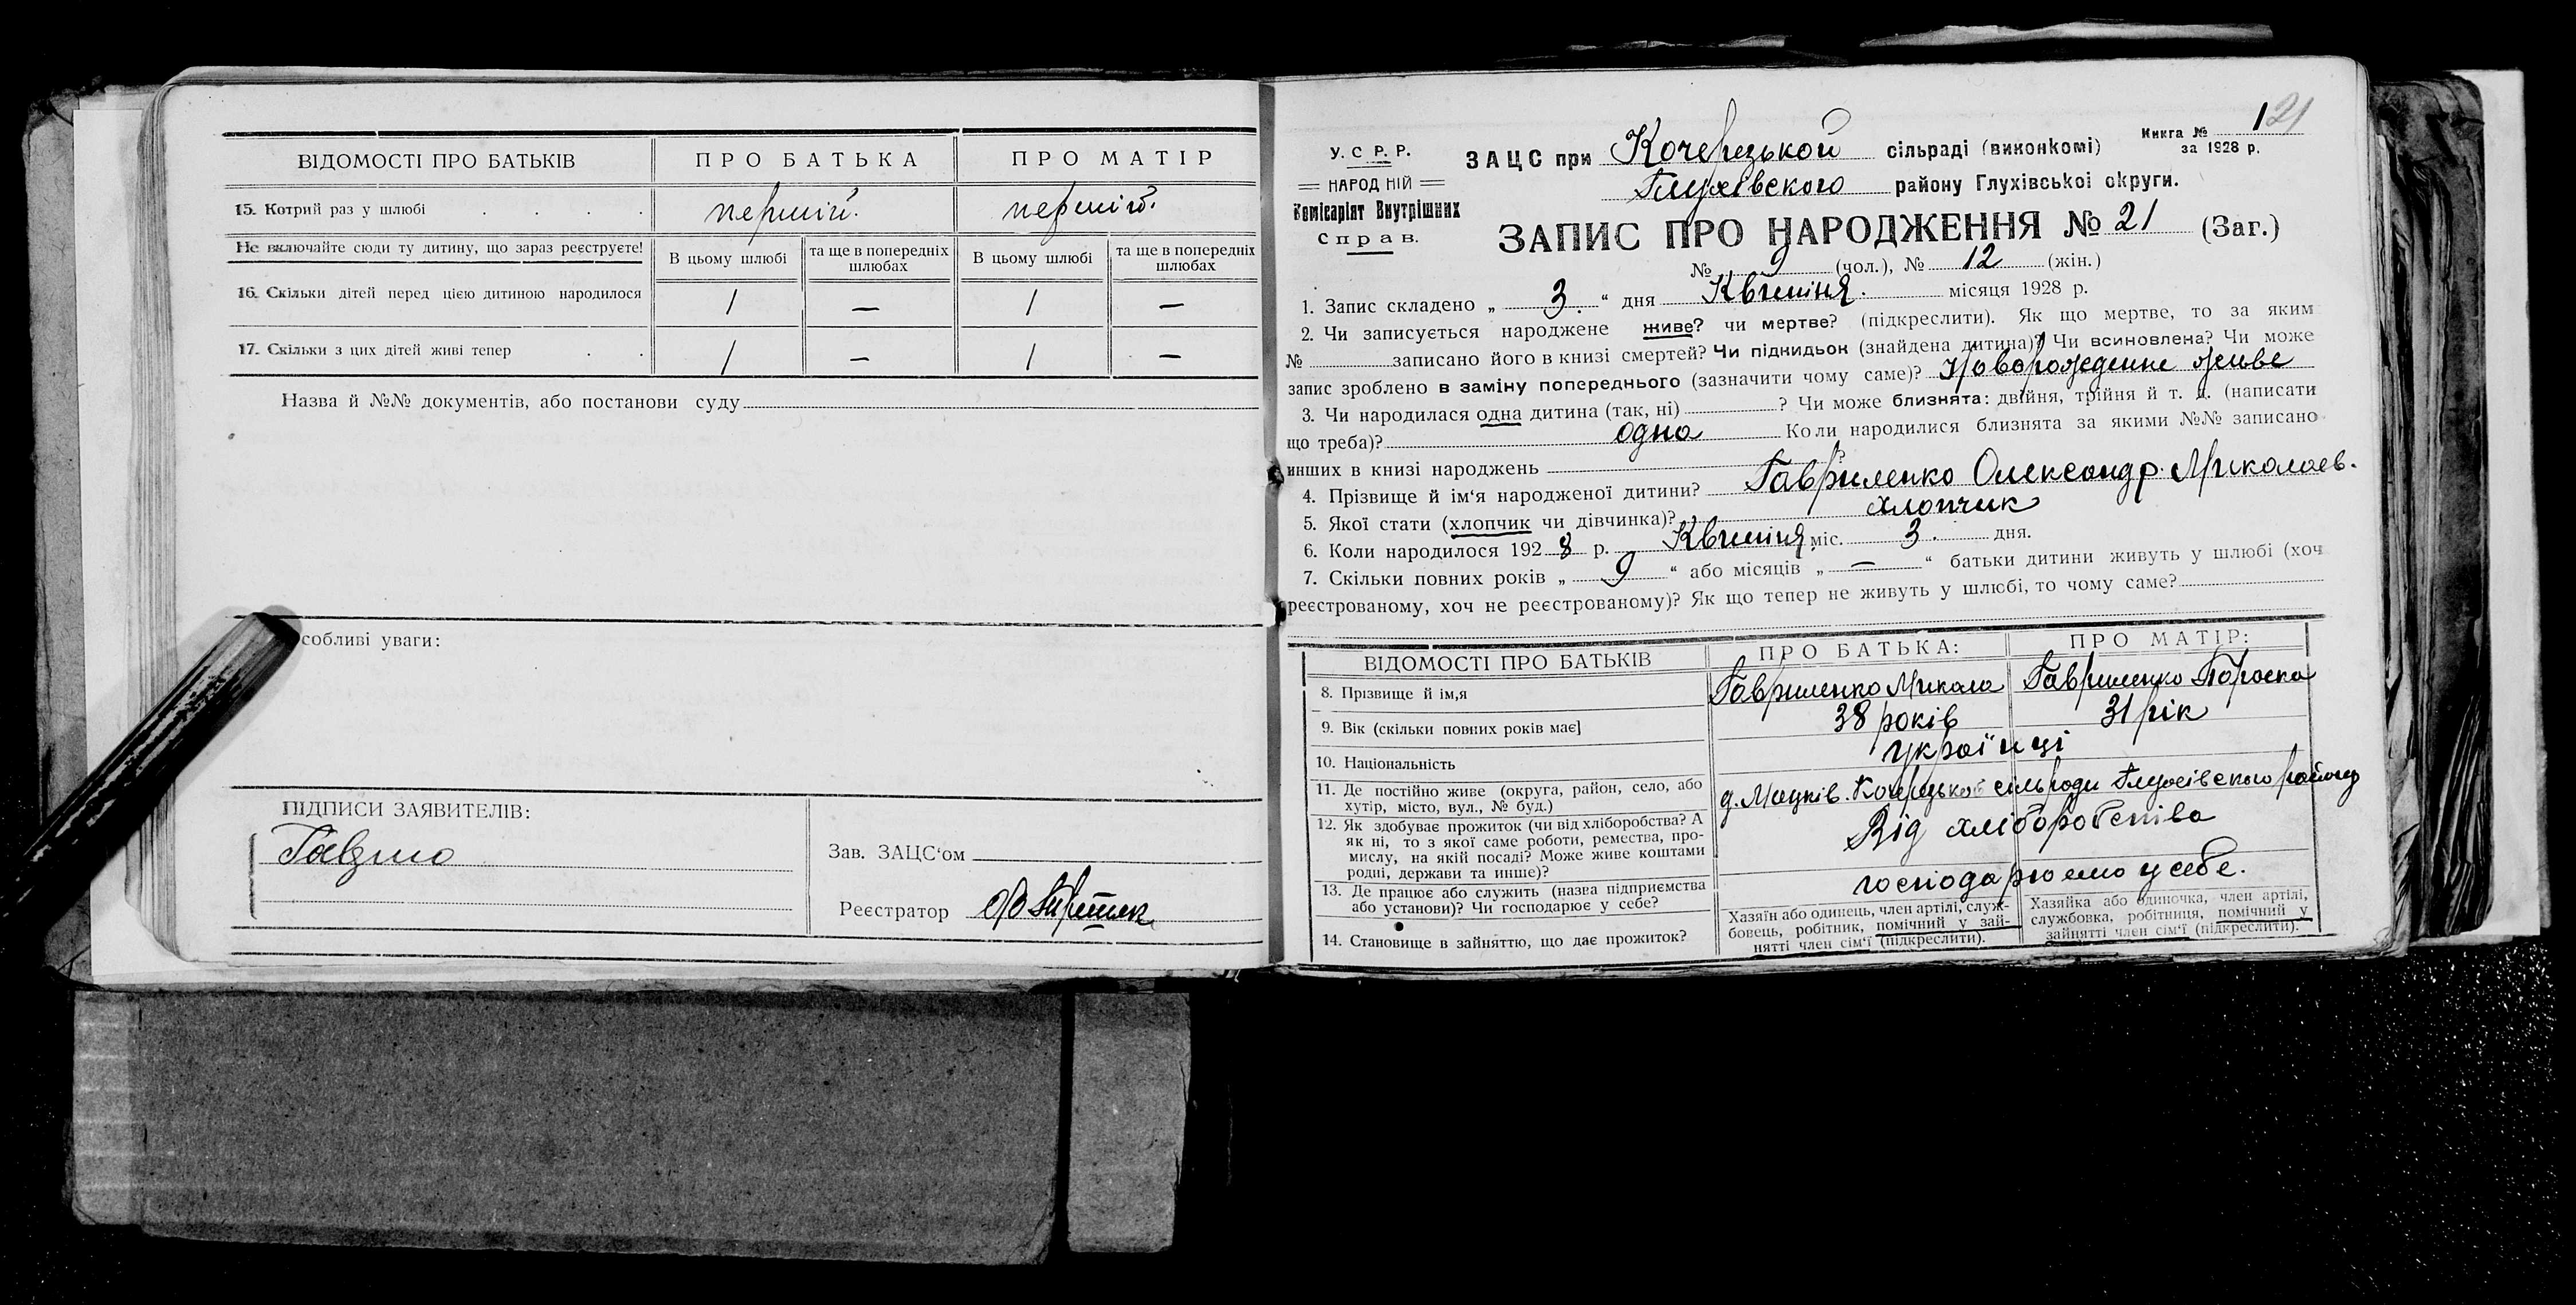 ВІДОМОСТІ ПРО БАТЬКІВ
ПРО БАТЬКА
ПРО МАТІР
15. Котрий раз у шлюбі . . . .
першій.
першій.
Не включайте сюди ту дитину, що зараз реєструєте!
В цьому шлюбі
та ще в попередніх
шлюбах
В цьому шлюбі
та ще в попередніх
шлюбах
16. Скільки дітей перед цією дитиною народилося
1 — 1 —
17. Скільки з цих дітей живі тепер . .
1 — 1 —
Назва й №№ документів, або постанови суду
собливі уваги:
ПІДПИСИ ЗАЯВИТЕЛІВ:
Зав. ЗАЦС'ом
Реєстратор
У. С Р. Р.
НАРОДНІЙ
Комісаріят Внутрішніх
Справ.
ЗАЦС при Кочерецькой сільраді (виконкомі)
Глухівского району Глухівської округи.
Книга № 1
за 1928 р.
21
ЗАПИС ПРО НАРОДЖЕННЯ № 21 (Заг.)
№ 9 (чол.), № 12 (жін.)
1. Запис складено „ 3. “ дня Квитіня. місяця 1928 р.
2. Чи записується народжене живе? чи мертве? (підкреслити). Як що мертве, то за яким
№ записано його в книзі смертей? Чи підкидьок (знайдена дитина)? Чи всиновлена? Чи може
запис зроблено в заміну попереднього (зазначити чому саме)? Новорожденне живе
3. Чи народилася одна дитина (так, ні) ? Чи може близнята: двійня, трійня й т. д. (написати
що треба)? одна Коли народилися близнята за якими №№ записано
инших в книзі народжень ?
4. Прізвище й ім'я народженої дитини? Гавриленко Олександр. Миколаев.
5. Якої стати (хлопчик чи дівчинка)? хлопчик
6. Коли народилося 1928 р. Квитіня міс. 3. дня.
7. Скільки повних років „ 9 “ або місяців „ — “ батьки дитини живуть у шлюбі (хоч
реєстрованому, хоч не реєстрованому)? Як що тепер не живуть у шлюбі, то чому саме?
ВІДОМОСТІ ПРО БАТЬКІВ
ПРО БАТЬКА:
ПРО МАТІР:
8. Прізвище й ім,я
Гавриленко Микола
Гавриленко Параска
9. Вік (скільки повних років має]
38 років
31 рік
10. Національність
українці
11. Де постійно живе (округа, район, село, або
хутір, місто, вул., № буд.)
Кочерецькой сільради Глухівского району
12. Як здобуває прожиток (чи від хліборобства? А
як ні, то з якої саме роботи, ремества, про-
мислу, на якій посаді? Може живе коштами
родні, держави та инше)?
Від хліборобства
13. Де працює або служить (назва підприємства
або установи)? Чи господарює у себе?
господарюемо у себе.
14. Становище в зайняттю, що дає прожиток?
Хазяїн або одинець, член артілі, служ-
бовець, робітник, помічний у зай-
нятті член сім'ї (підкреслити).
Хазяйка або одиночка, член артілі,
службовка, робітниця, помічний у
зайнятті член сім'ї (підкреслити).